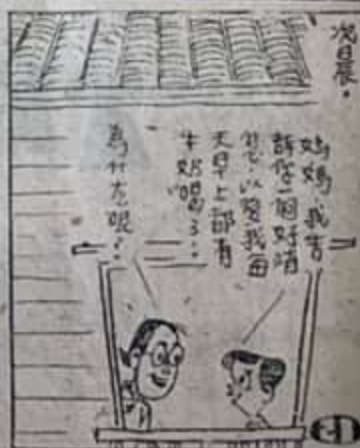 次日晨。
媽媽,我告
訴你一個好消
息,以後我每
天早上都有
牛奶喝了!
為什麼呢?